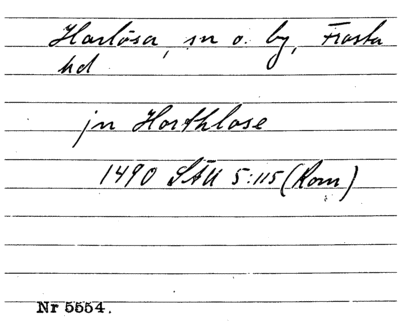 Harlösa, sn o. by, Frosta
hd
jn Horthlose
1490 SÄU 5:115 (Rom)
Nr 5554.